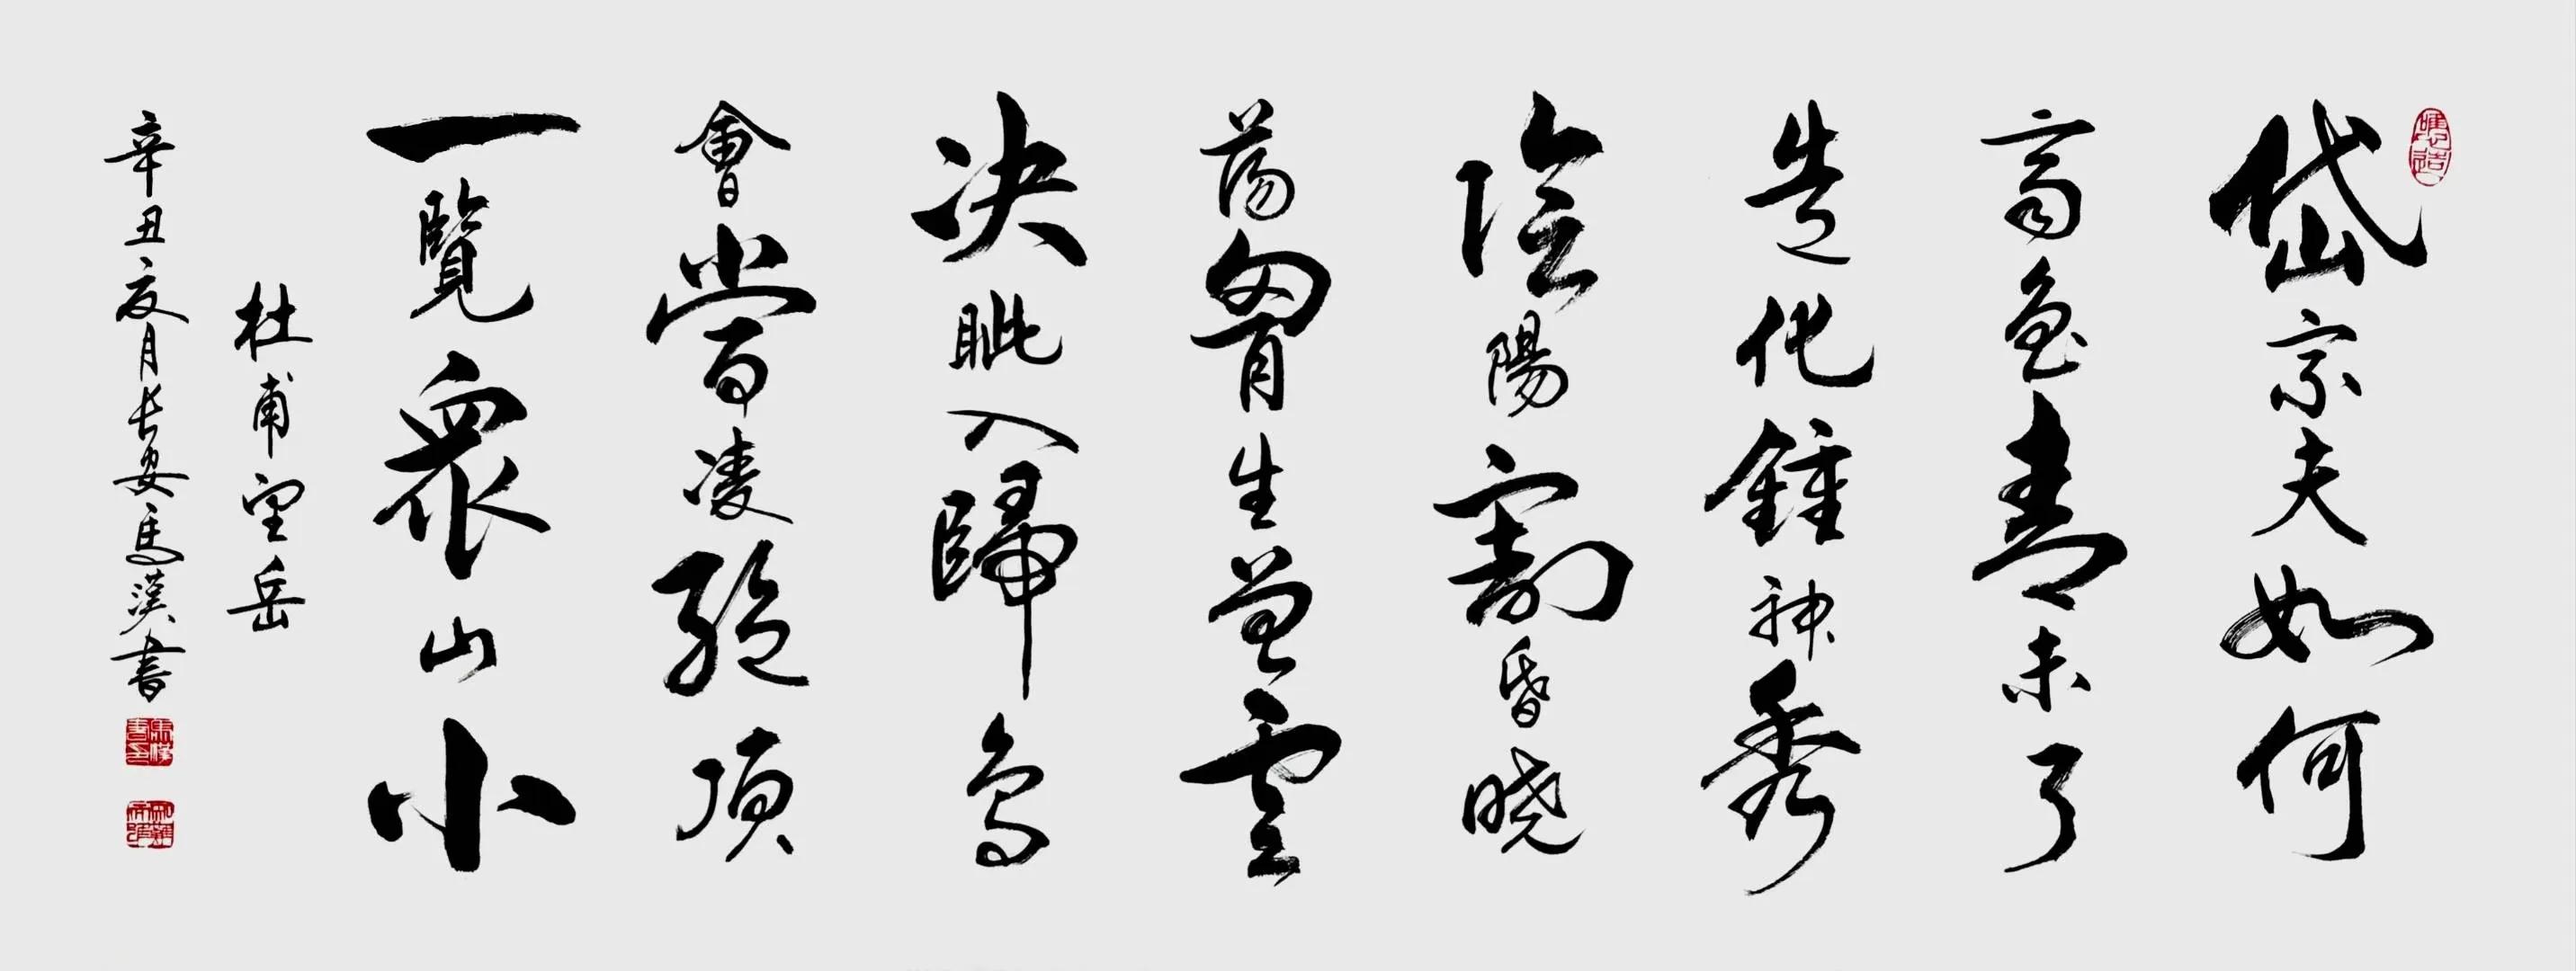 岱宗夫如何
齊魯青未了
造化鍾神秀
陰陽割昏曉
蕩胷生曾雲
决眦入歸鳥
會當凌絶頂
一覽衆山小
杜甫望岳
辛丑夏月長安馬漢書